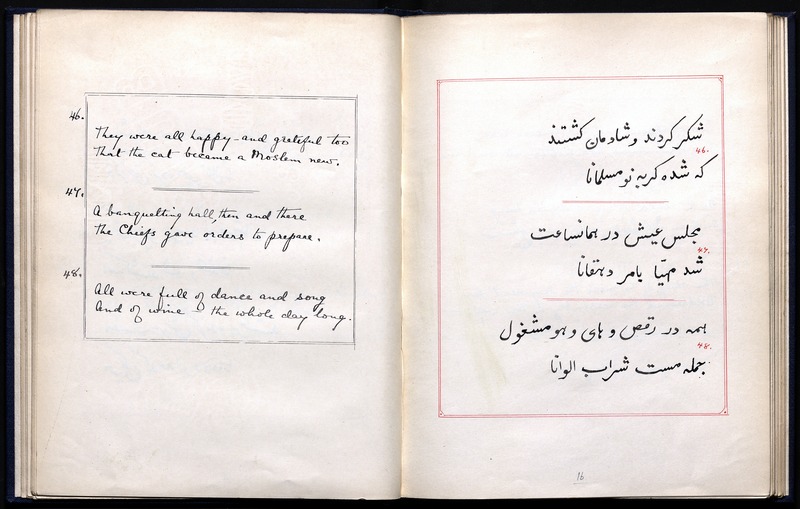 46.
They were all happy - and grateful too
That the cat became a Moslem new.
47.
A banquetting hall, then and there
the Chiefs gave orders to prepare.
48.
All were full of dance and song
And of wine - the whole day long.
شکر کردند و شادمان کشتند
46.
که شده کربه نو مسلمانا
مجلس عیش در همانساعت
47.
شد مهیّا بامر دهقانا
همه در رقص و های و هو مشغول
48.
جمله مست شراب الوانا
16